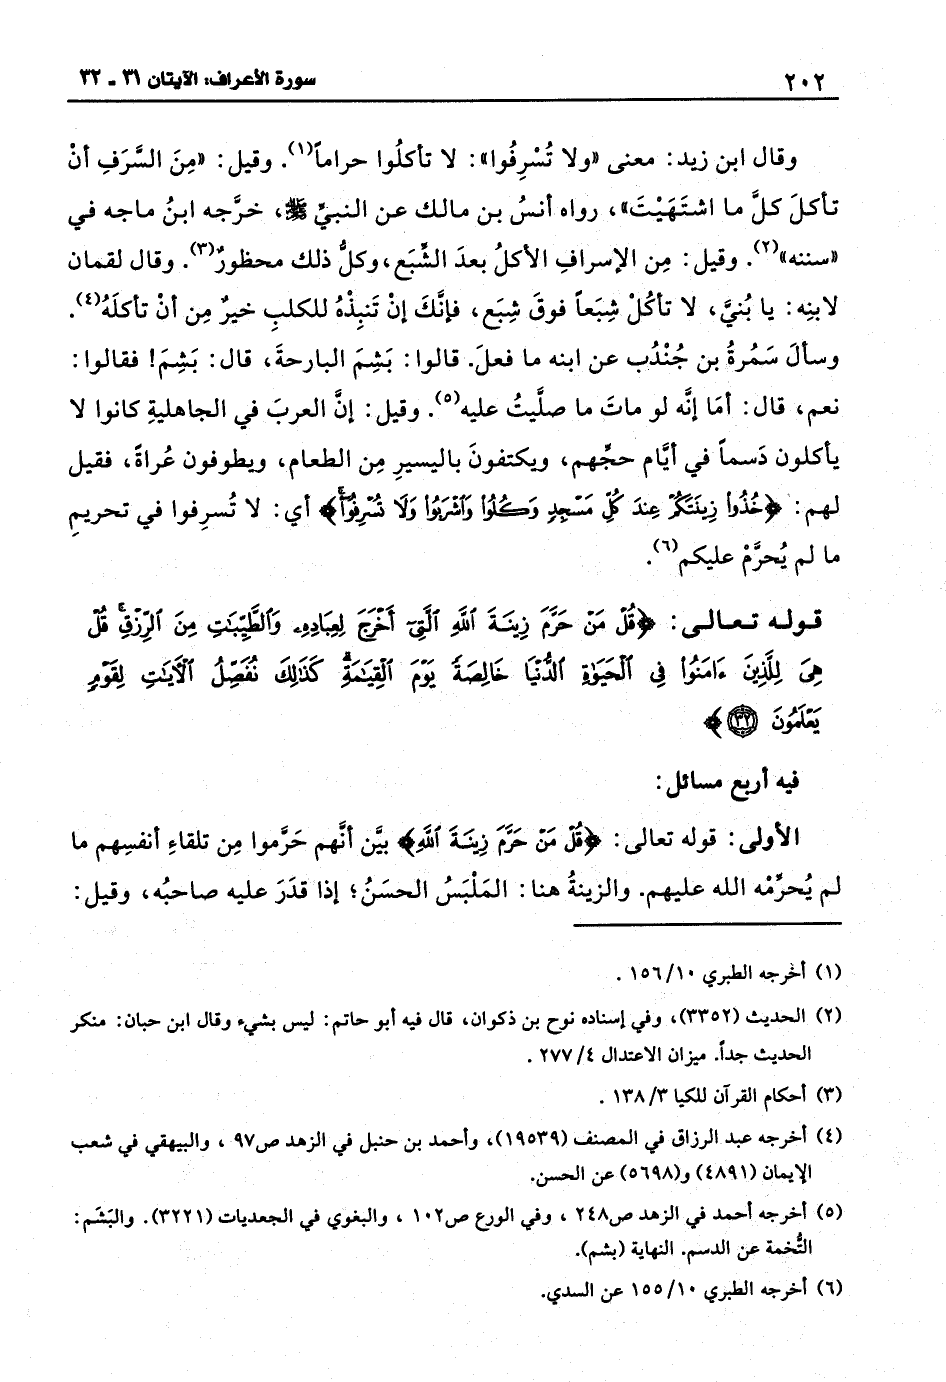 ٢٠٢ سورة الأعراف: الآيتان ٣١ ـ ٣٢
وقال ابن زيد: معنى «ولا تُسْرِفُوا»: لا تأكلُوا حراماً(١). وقيل: «مِنَ السَّرَفِ أنْ
تأكلَ كلَّ ما اشتَهَيْتَ»، رواه أنسُ بن مالك عن النبيِّ ﷺ، خرَّجه ابنُ ماجه في
«سننه»(٢). وقيل: مِن الإسرافِ الأكلُ بعدَ الشِّبَع، وكلُّ ذلك محظورٌ(٣). وقال لقمان
لابنِه: يا بُنيَّ، لا تأكُلْ شِبَعاً فوقَ شِبَع، فإنَّكَ إنْ تَنبِذْهُ للكلبِ خيرٌ مِن أنْ تأكلَهُ(٤).
وسألَ سَمُرةُ بن جُنْدُب عن ابنه ما فعلَ. قالوا: بَشِمَ البارحةَ، قال: بَشِمَ! فقالوا:
نعم، قال: أمَا إنَّه لو ماتَ ما صلَّيتُ عليه(٥). وقيل: إنَّ العربَ في الجاهليةِ كانوا لا
يأكلون دَسماً في أيَّام حجِّهم، ويكتفونَ باليسيرِ مِن الطعام، ويطوفون عُراةً، فقيل
لهم: ﴿خُذُواْ زِينَتَكُمْ عِندَ كُلِّ مَسْجِدٍ وَكُلُواْ وَٱشْرَبُواْ وَلَا تُسْرِفُوٓاْۚ﴾ أي: لا تُسرِفوا في تحريمِ
ما لم يُحرَّمْ عليكم(٦).
قوله تعالى: ﴿قُلْ مَنْ حَرَّمَ زِينَةَ ٱللَّهِ ٱلَّتِىٓ أَخْرَجَ لِعِبَادِهِۦ وَٱلطَّيِّبَٰتِ مِنَ ٱلرِّزْقِۚ قُلْ
هِىَ لِلَّذِينَ ءَامَنُواْ فِى ٱلْحَيَوٰةِ ٱلدُّنْيَا خَالِصَةً يَوْمَ ٱلْقِيَٰمَةِۗ كَذَٰلِكَ نُفَصِّلُ ٱلْأَيَٰتِ لِقَوْمٍ
يَعْلَمُونَ ٣٢﴾
فيه أربع مسائل:
الأولى: قوله تعالى: ﴿قُلْ مَنْ حَرَّمَ زِينَةَ ٱللَّهِ﴾ بيَّن أنَّهم حَرَّموا مِن تلقاءِ أنفسِهم ما
لم يُحرِّمْه الله عليهم. والزينةُ هنا: المَلْبَسُ الحسَنُ؛ إذا قدَرَ عليه صاحبُه، وقيل:
(١) أخرجه الطبري ١٠/ ١٥٦ .
(٢) الحديث (٣٣٥٢)، وفي إسناده نوح بن ذكوان، قال فيه أبو حاتم: ليس بشيء وقال ابن حبان: منكر
الحديث جداً. ميزان الاعتدال ٤/ ٢٧٧ .
(٣) أحكام القرآن للكيا ٣/ ١٣٨ .
(٤) أخرجه عبد الرزاق في المصنف (١٩٥٣٩)، وأحمد بن حنبل في الزهد ص٩٧ ، والبيهقي في شعب
الإيمان (٤٨٩١) و(٥٦٩٨) عن الحسن.
(٥) أخرجه أحمد في الزهد ص٢٤٨ ، وفي الورع ص١٠٢ ، والبغوي في الجعديات (٣٢٢١). والبَشَم:
التُّخمة عن الدسم. النهاية (بشم).
(٦) أخرجه الطبري ١٠/ ١٥٥ عن السدي.